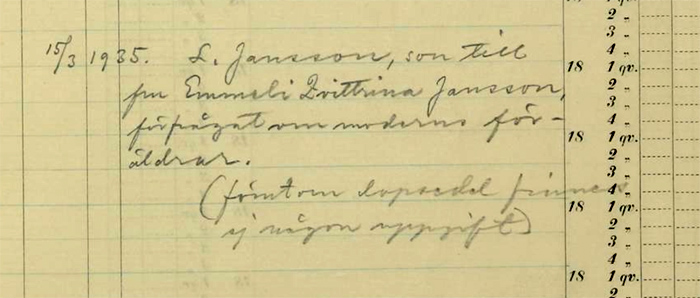 15/3 1935. L. Jansson, son till
fru Emmeli Qvittrina Jansson,
förfrågat om moderns för-
äldrar.
(förutom lapsedel finnes
ej någon uppgift)
18 1 qv.
2 „
3 „
4 „
18 1 qv.
2 „
3 „
4 „
18 1 qv.
2 „
3 „
4 „
18 1 qv.
2 „
3 „
4 „
18 1 qv.
2